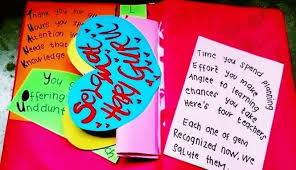 Thank you for
Hours you spend
Attention in
Needs that
Knowledge
You
Offering
Unddunt
Selamat
Hari Guru
Time you spend planning
Effort you make
Angles to learning
chances you take
Here's four teachers
Each one of gem
Recognized now, we
salute them.